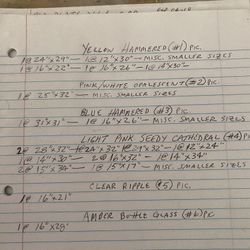 YELLOW HAMMERED (#1) PIC.
1@ 24"x29" — 1@12"x30" — MISC. SMALLER SIZES
1@ 16"x22" — 1@ 16"x26" — 1@14"x30"
PINK/WHITE OPALESCENT (#2) PIC.
1@ 25"x32" — MISC. SMALLER SIZES
BLUE HAMMERED (#3) PIC.
1@ 31"x31" — 1@ 16"x26" — MISC. SMALLER SIZES
LIGHT PINK SEEDY CATHEDRAL (#4) PIC
2@ 28"x32" 1@ 24"x32" 1@ 29"x32" — 1@ 12"x24"
1@ 14"x30" — 2@ 16"x32" — 1@ 14"x34"
2@ 15"x34" — 1@ 15"x17" — MISC. SMALLER SIZES
CLEAR RIPPLE (#5) PIC.
1@ 16"x21"
AMBER BOTTLE GLASS (#6) PIC
1@ 16"x29"